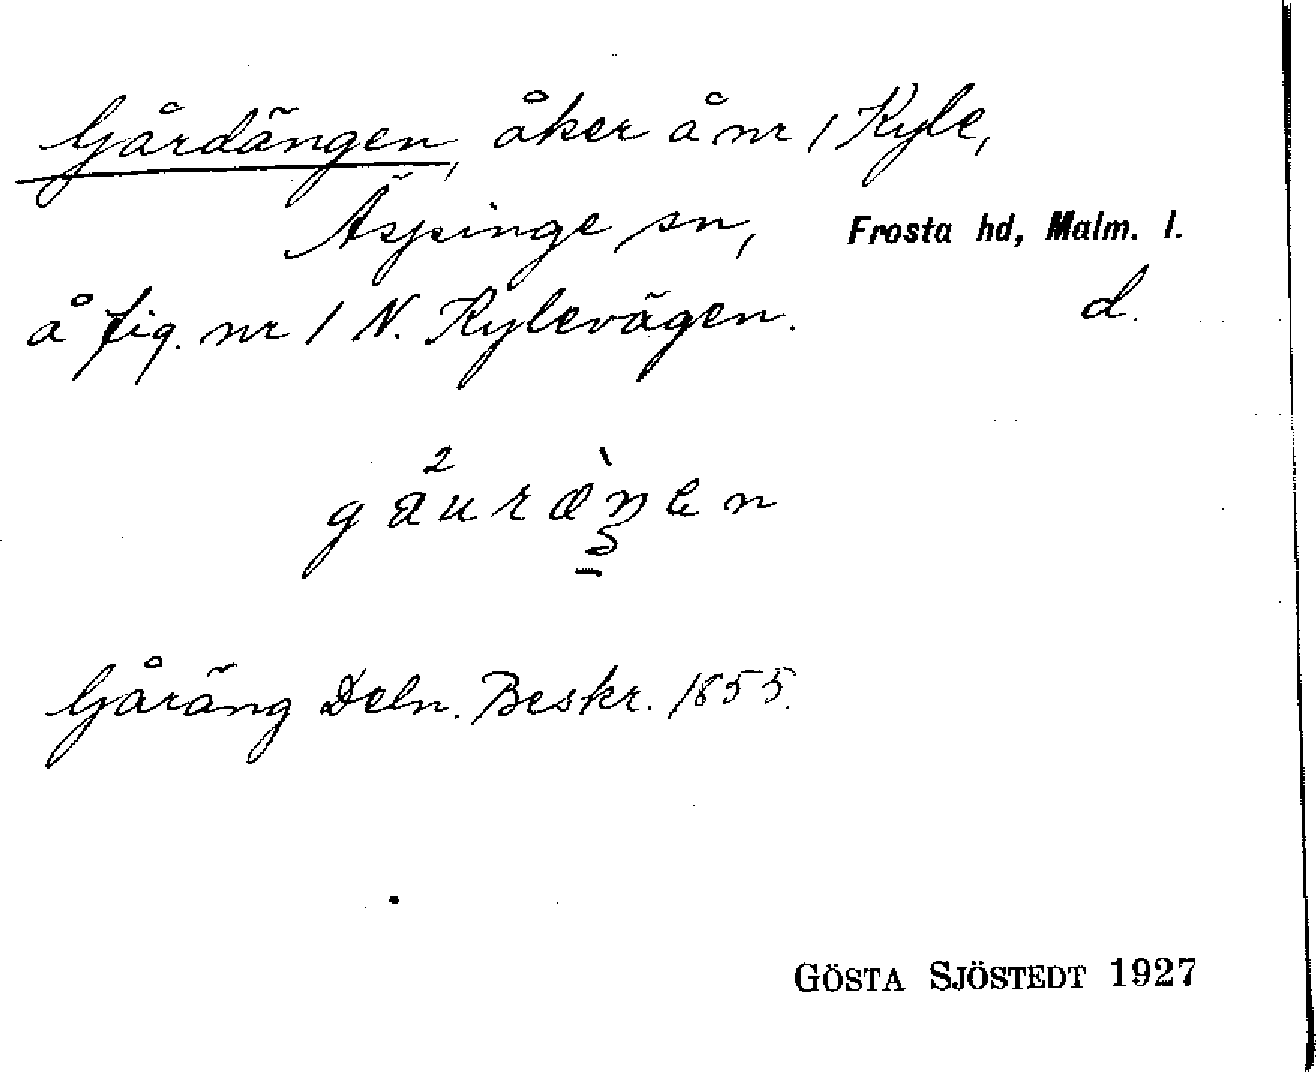 Gårdängen, åker å nr 1 Kyle,
Äspinge sn, Frosta hd, Malm. l.
å fig. nr 1 N. Kylevägen. d.
gåuræ̀ŋen
Gåräng Deln. Beskr. 1855.
GÖSTA SJÖSTEDT 1927